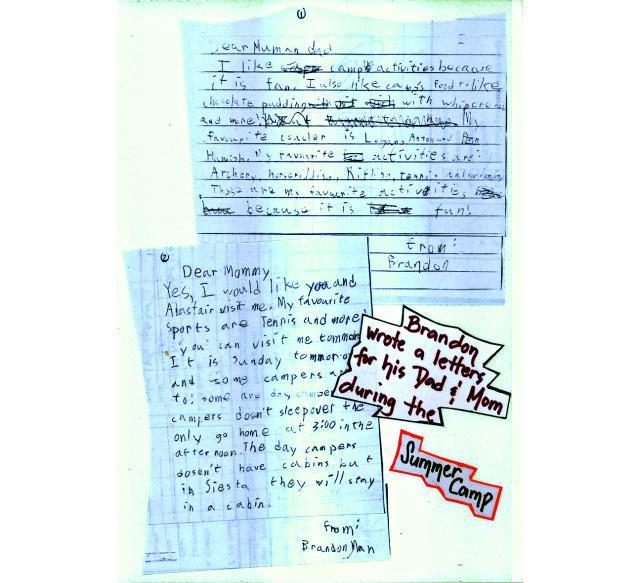 ①
Dear Mum an dad
I like camp activities because
it is fun. I also like camps food like
chocolate pudding with whipcream
and more! My
favourite couler is Logans, Anton and
Hamish. My favourite activities are:
Archery, horseridding, Kitting, tennis and
Those are my favourite activities,
because it is fun!
From:
Brandon
②
Dear Mommy
Yes, I would like you and
Alastair visit me. My favourite
sports are Tennis and more.
you can visit me tommoro
It is Sunday tommorow
and some campers
to; some are day camper
campers dosn't sleepover the
only go home at 3:00 in the
afternoon. The day campers
dosen't have cabins but
in Siesta they will stay
in a cabin.
From:
Brandon Man
Brandon
wrote a letters
for his Dad & Mom
during the
Summer
Camp